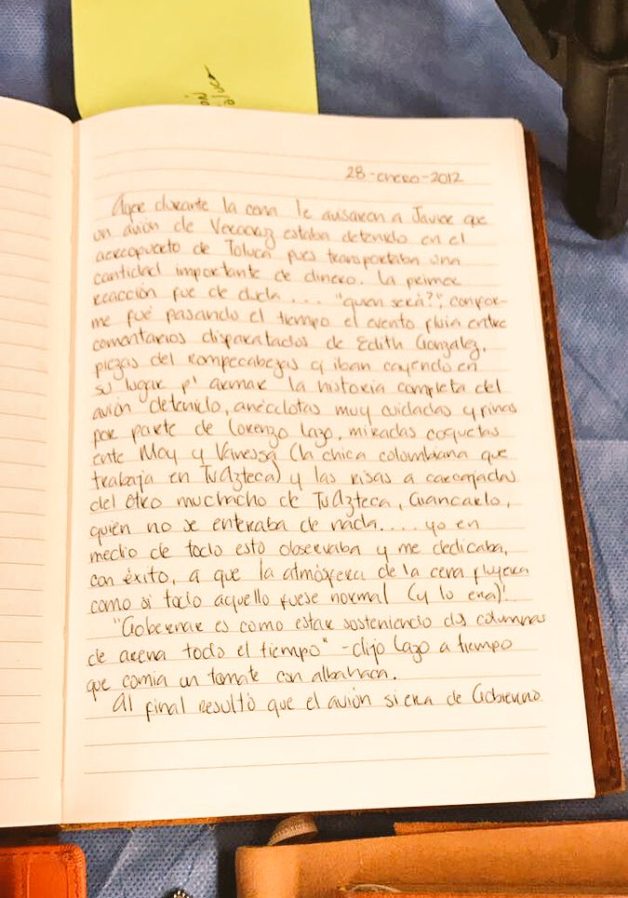 28-enero-2012
Ayer durante la cena le avisaron a Javier que
un avión de Veracruz estaba detenido en el
aereopuerto de Toluca pues transportaba una
cantidad importante de dinero. La primer
reacción fue de duda.... "quién será?"; confor-
me fué pasando el tiempo el evento fluía entre
comentarios disparatados de Edith González,
piezas del rompecabezas q iban cayendo en
su lugar p' armar la historia completa del
avión detenido, anécdotas muy cuidadas y finas
por parte de Lorenzo Lazo, miradas coquetas
ente Moy y Vanessa (la chica colombiana que
trabaja en TvAzteca) y las risas a carcajadas
del otro muchacho de TvAzteca, Giancarlo,
quién no se enteraba de nada.... yo en
medio de todo esto observaba y me dedicaba,
con éxito, a que la atmósfera de la cena fluyera
como si todo aquello fuese normal (y lo era)!
"Gobernar es como estar sosteniendo dos columnas
de arena todo el tiempo" -dijo Lazo a tiempo
que comía un tomate con albahaca.
Al final resultó que el avión si era de Gobierno